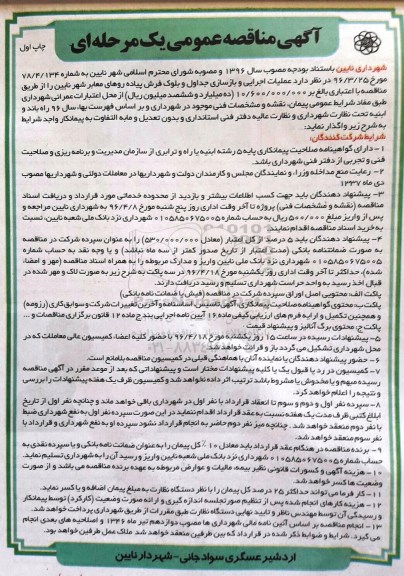 آگهی مناقصه عمومی یک مرحله ای
چاپ اول
شهرداری نایین باستناد بودجه مصوب سال ۱۳۹۶ و مصوبه شورای محترم اسلامی شهر نایین به شماره ۷۸/۴/۱۳۴
مورخ ۹۶/۳/۲۵ در نظر دارد عملیات اجرایی و بازسازی جداول و بلوک فرش پیاده روهای معابر شهر نایین را از طریق
مناقصه با اعتباری بالغ بر ۱۰/۶۰۰/۰۰۰/۰۰۰ (ده میلیارد و ششصد میلیون ریال) از محل اعتبارات عمرانی شهرداری
طبق مفاد شرایط عمومی پیمان، نقشه و مشخصات فنی موجود در شهرداری و بر اساس فهرست بها، سال ۹۶ راه باند و
ابنیه تحت نظارت شهرداری و نظارت عالیه دفتر فنی استانداری و بدون تعدیل و مابه التفاوت به پیمانکار واجد شرایط
به شرح زیر واگذار نماید:
شرایط شرکت کنندگان:
۱- دارای گواهینامه صلاحیت پیمانکاری پایه ۵ رشته ابنیه یا راه و ترابری از سازمان مدیریت و برنامه ریزی و صلاحیت
فنی و تجربی از دفتر فنی شهرداری باشد.
۲- رعایت منع مداخله وزراء و نمایندگان مجلس و کارمندان دولت و شهرداریها در معاملات دولتی و شهرداریها مصوب
دی ماه ۱۳۳۷
۳- پیشنهاد دهندگان باید جهت کسب اطلاعات بیشتر و بازدید از محدوده خدماتی مورد قرارداد و دریافت اسناد
مناقصه (نقشه و مشخصات فنی) پروژه تا آخر وقت اداری روز پنج شنبه مورخ ۹۶/۴/۸ به شهرداری نایین مراجعه و
پس از واریز مبلغ ۵۰۰/۰۰۰ ریال به حساب شماره ۰۱۰۵۸۵۰۶۷۵۰۰۵ شهرداری نزد بانک ملی شعبه نایین، نسبت
به خرید اسناد مناقصه اقدام نمایند.
۴- پیشنهاد دهندگان باید ۵ درصد از کل اعتبار (معادل ۵۳۰/۰۰۰/۰۰۰) را به عنوان سپرده شرکت در مناقصه
به صورت ضمانتنامه بانکی (مدت اعتبار از تاریخ صدور کمتر از سه ماه نباشد) و یا وجه نقد به حساب شماره
۰۱۰۵۸۵۰۶۷۵۰۰۵ شهرداری نزد بانک ملی نایین واریز و مدارک مربوطه را به همراه اسناد مناقصه (مهر و امضاء
شده)، حداکثر تا آخر وقت اداری روز یکشنبه مورخ ۹۶/۴/۱۸ در سه پاکت به شرح زیر به صورت لاک و مهر شده در
قبال اخذ رسید به واحد حراست شهرداری تسلیم و رسید دریافت دارند.
پاکت الف: محتویی اصل اوراق سپرده شرکت در مناقصه (فیش یا ضمانت نامه بانکی)
پاکت ب: محتوی گواهینامه صلاحیت پیمانکاری، آگهی تاسیس، اساسنامه و آخرین تغییرات شرکت و سوابق کاری (رزومه)
و همچنین تکمیل و ارایه فرم های ارزیابی کیفی ماده ۱۶ آیین نامه اجرایی بند ج ماده ۱۲ قانون برگزاری مناقصات و ...
پاکت ج: محتوی برگ آنالیز و پیشنهاد قیمت
۵- پیشنهادات رسیده در ساعت ۱۵ روز یکشنبه مورخ ۹۶/۴/۱۸ با حضور کلیه اعضا، کمیسیون عالی معاملات که در
محل شهرداری تشکیل می گردد باز و قرائت خواهد شد.
۶- حضور پیشنهاد دهندگان یا نماینده آنان با هماهنگی قبلی در کمیسیون مناقصه بلامانع است.
۷- کمیسیون در رد یا قبول یک یا کلیه پیشنهادات مختار است و پیشنهاداتی که بعد از موعد مقرر در آگهی مناقصه
رسیده مبهم و یا مخدوش یا مشروط باشد ترتیب اثر داده نخواهد شد و کمیسیون ظرف یک هفته پیشنهادات را بررسی
و نتیجه را اعلام خواهد کرد.
۸- سپرده نفر اول و دوم و سوم تا انعقاد قرارداد با نفر اول در شهرداری باقی خواهد ماند و چنانچه نفر اول از تاریخ
ابلاغ کتبی ظرف مدت یک هفته نسبت به عقد قرارداد اقدام ننماید در این صورت سپرده نفر اول به نفع شهرداری ضبط
با نفر دوم منعقد خواهد شد. چنانچه میز نفر دوم حاضر به انجام قرارداد نشود سپرده او به نفع شهرداری و قرارداد با
نفر سوم منعقد خواهد شد.
۹- برنده مناقصه در هنگام عقد قرارداد باید معادل ۱۰٪ کل پیمان را به عنوان ضمانت نامه بانکی و یا سپرده نقدی به
حساب شماره ۰۱۰۵۸۵۰۶۷۵۰۰۵ شهرداری نزد بانک ملی شعبه نایین واریز و رسید آن را به شهرداری تسلیم نماید.
۱۰- هزینه آگهی و کسورات قانونی نظیر بیمه، مالیات و عوارض مربوطه به عهده برنده مناقصه می باشد و از صورت
وضعیت ها کسر خواهد شد.
۱۱- کار فرما می تواند حداکثر ۲۵ درصد کل پیمان را با نظر دستگاه نظارت به مبلغ پیمان اضافه و یا کسر نماید.
۱۲- هزینه کارهای انجام شده پس از تنظیم صورتجلسه اندازه گیری و ارائه صورت وضعیت (کارکرد) توسط پیمانکار
و رسیدگی آن توسط مهندس ناظر و تایید نهایی دستگاه نظارت طبق مقررات از طریق شهرداری پرداخت خواهد شد.
۱۳- انجام مناقصه بر اساس آئین نامه مالی شهرداری ها مصوب دوازدهم تیر ماه ۱۳۴۶ و اصلاحیه های بعدی انجام
می گیرد. شرایط و ضوابط ذکر شده در قرارداد که بین طرفین منعقد خواهد شد ملاک عمل طرفین خواهد بود.
اردشیر عسگری سواد جانی - شهردار نایین